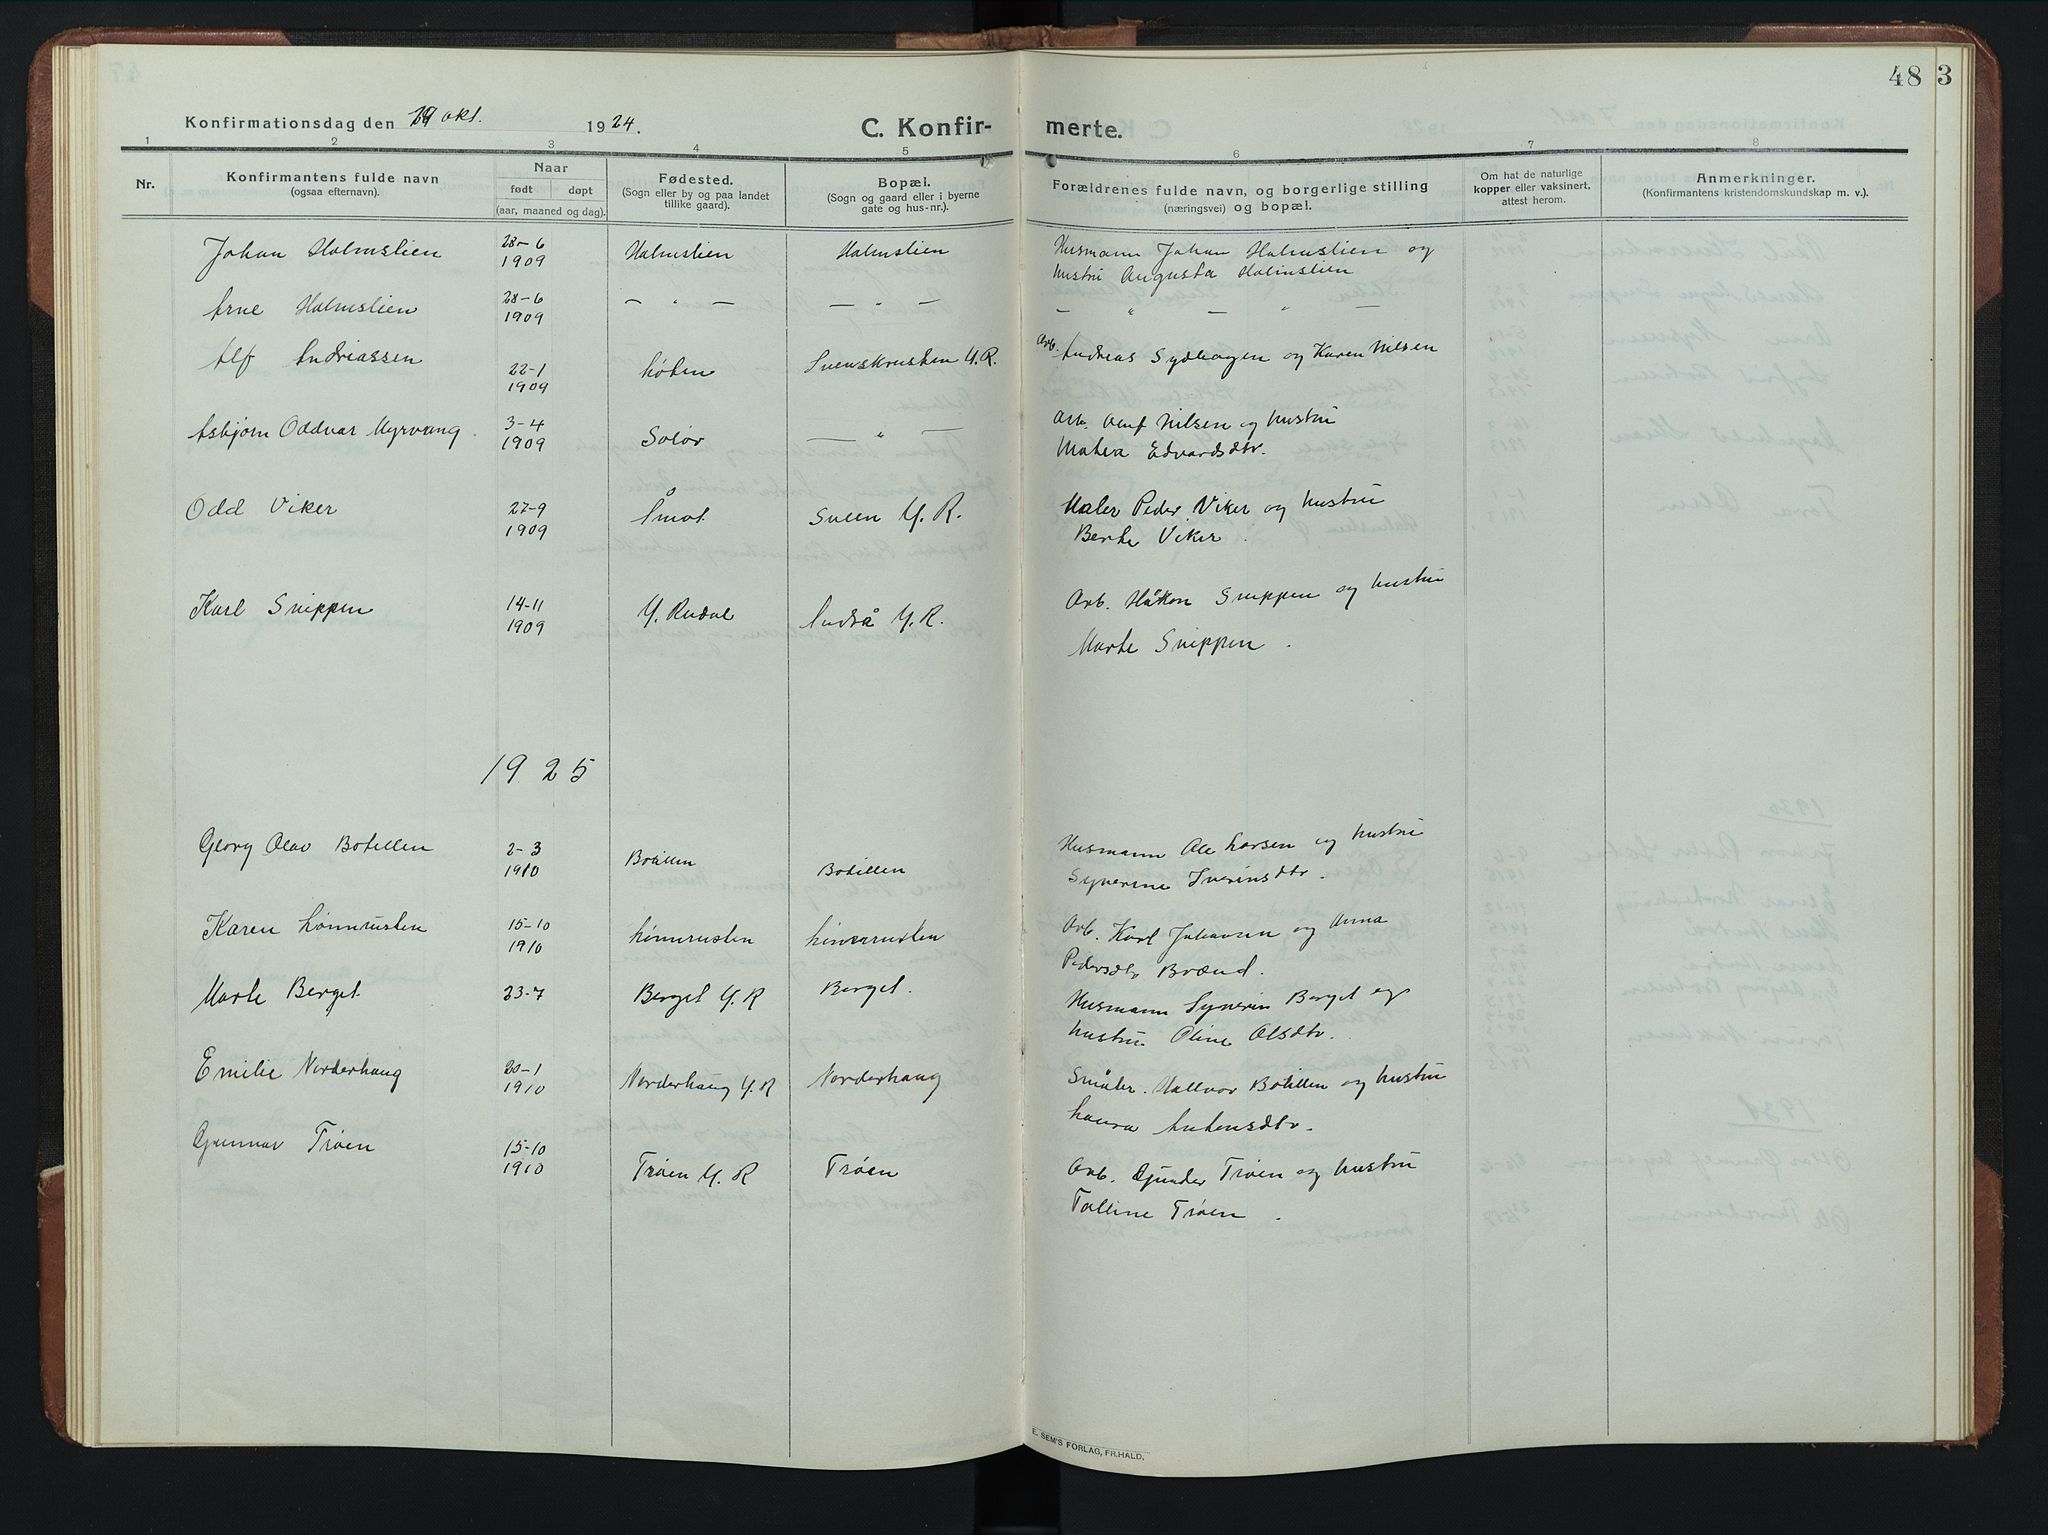 48 3
Konfirmationsdag den okt. 1924.
C. Konfir- merte.
1 2 3 4 5 6 7 8
Nr.
Konfirmantens fulde navn
(ogsaa efternavn).
Naar
født døpt
(aar, maaned og dag).
Fødested.
(Sogn eller by og paa landet
tillike gaard).
Bopæl.
(Sogn og gaard eller i byerne
gate og hus-nr.).
Forældrenes fulde navn, og borgerlige stilling
(næringsvei) og bopæl.
Om hat de naturlige
kopper eller vaksinert,
attest herom.
Anmerkninger.
(Konfirmantens kristendomskundskap m. v.).
Johan Holmslien 28-6 Holmslien Holmslien Husmann Johan Holmslien og
1909 hustru Augusta Holmslien
Arne Holmslien 28-6 — " — — " —
1909 — " — " —
Alf Andreassen 22-1 Løten Svenskrusten Y. R. Arb. Andreas Sydhagen og Karen Nilsen
1909
Asbjørn Oddvar Myrvang 3-4 Solør — " — Arb. Oluf Nilsen og hustru
1909 Matea Edvardsdtr.
Odd Viker 27-9 Åmot Sveen Y. R. Maler Peder Viker og hustru
1909 Berte Viker.
Karl Snippen 14-11 Y. Rendal Andrå Y. R. Arb. Håkon Snippen og hustru
1909 Marte Snippen.
1925
Georg Olav Botillen 2-3 Botillen Botillen Husmann Ole Larsen og hustru
1910 Synerine Iverinsdtr.
Karen Lønnrusten 15-10 Lønnrusten Lønnrusten Arb. Karl Johansen og Anna
1910 Pedersdtr Brænd.
Marte Berget 23-7 Berget Y. R Berget. Husmann Synerin Berget og
hustru Oline Olsdtr.
Emilie Norderhaug 20-1 Norderhaug Y. R Norderhaug Småbr. Hallvor Botillen og hustru
1910 Laura Antonsdtr.
Gunnar Trøen 15-10 Trøen Y. R Trøen Arb. Gjunder Trøen og hustru
1910 Talline Trøen.
E. SEM'S FORLAG, FR.HALD.